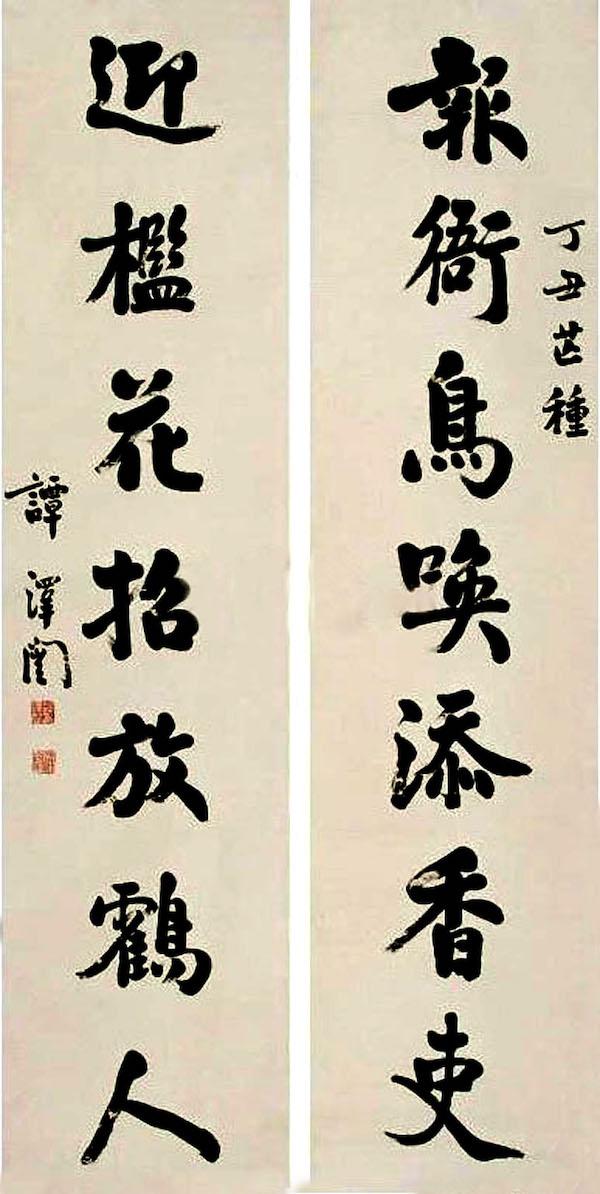 丁丑芒種
報衙鳥喚添香吏
迎檻花招放鸖人
譚澤闓